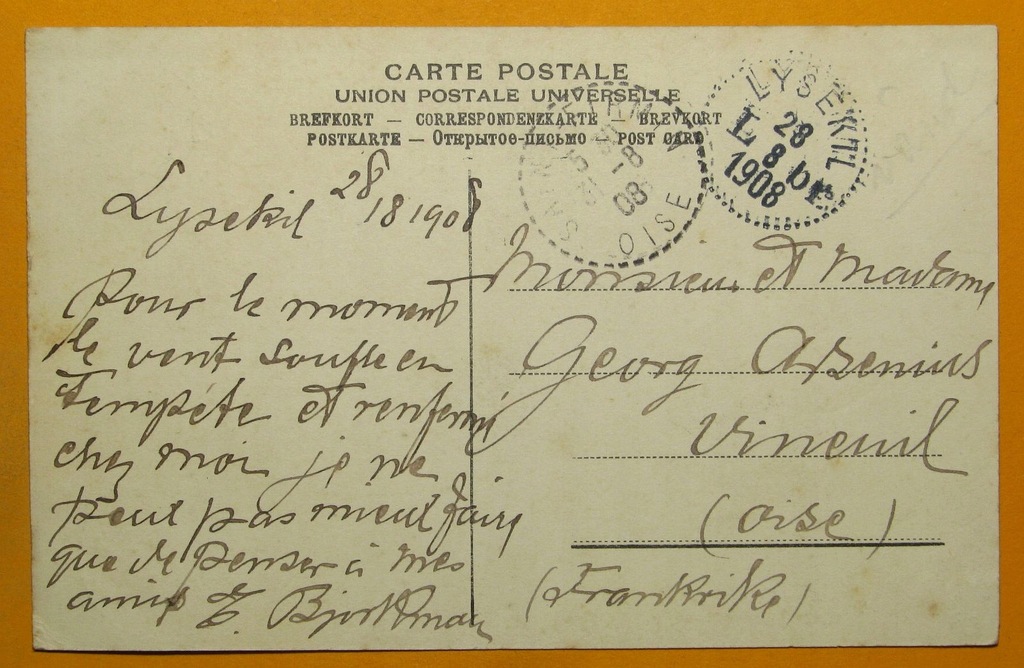 CARTE POSTALE
UNION POSTALE UNIVERSELLE
BREFKORT — CORRESPONDENZKARTE — BREVKORT
POSTKARTE — Открытое-письмо — POST CARD
LYSEKIL
28
8
1908
OISE
08
Lysekil 28/8 1908
Pour le moment
le vent souffle en
tempéte et renfermé
chez moi je ne
peut pas mieux faire
que de penser à mes
amis E. Björkman
Monsieur et Madame
Georg Arsenius
Vineuil
(Oise)
(Frankrike)